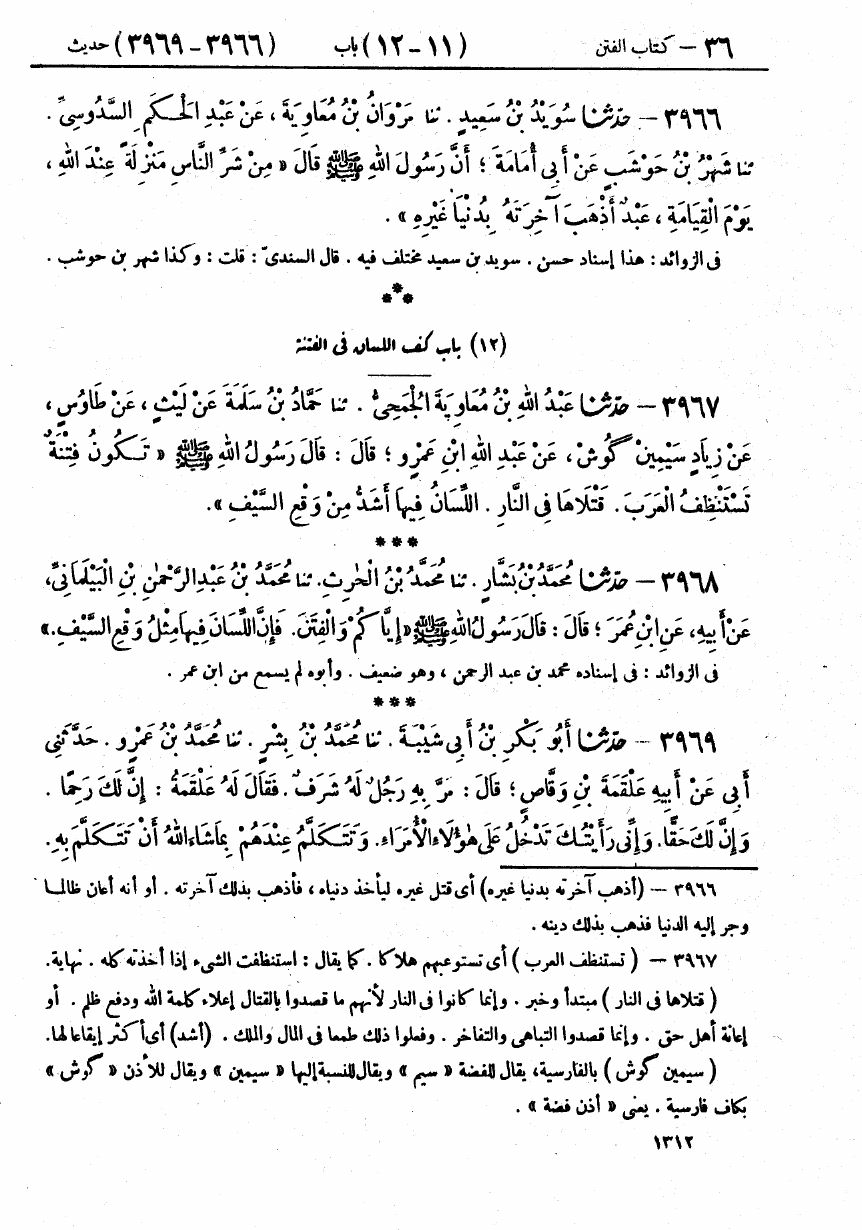 ٣٦ – كتاب الفتن (١١-١٢) باب (٣٩٦٦-٣٩٦٩) حديث
٣٩٦٦ – حَدَّثَنَا سُوَيْدُ بْنُ سَعِيدٍ . ثنا مَرْوَانُ بْنُ مُعَاوِيَةَ ، عَنْ عَبْدِ الْحَكَمِ السَّدُوسِيِّ .
ثنا شَهْرُ بْنُ حَوْشَبٍ عَنْ أَبِي أُمَامَةَ ؛ أَنَّ رَسُولَ اللهِ ﷺ قَالَ « مِنْ شَرِّ النَّاسِ مَنْزِلَةً عِنْدَ اللهِ ،
يَوْمَ الْقِيَامَةِ ، عَبْدٌ أَذْهَبَ آخِرَتَهُ بِدُنْيَا غَيْرِهِ » .
فى الزوائد : هذا إسناد حسن . سويد بن سعيد مختلف فيه . قال السندىّ : قلت : وكذا شهر بن حوشب .
***
(١٢) باب كف اللسان فى الفتنة
٣٩٦٧ – حَدَّثَنَا عَبْدُ اللهِ بْنُ مُعَاوِيَةَ الْجُمَحِيُّ . ثنا حَمَّادُ بْنُ سَلَمَةَ عَنْ لَيْثٍ ، عَنْ طَاوُسٍ ،
عَنْ زِيَادٍ سَيْمِينْ گُوشْ ، عَنْ عَبْدِ اللهِ ابْنِ عَمْرٍو ؛ قَالَ : قَالَ رَسُولُ اللهِ ﷺ « تَكُونُ فِتْنَةٌ
تَسْتَنْظِفُ الْعَرَبَ . قَتْلَاهَا فِي النَّارِ . اللِّسَانُ فِيهَا أَشَدُّ مِنْ وَقْعِ السَّيْفِ » .
***
٣٩٦٨ – حَدَّثَنَا مُحَمَّدُ بْنُ بَشَّارٍ . ثنا مُحَمَّدُ بْنُ الْحٰرِثِ . ثنا مُحَمَّدُ بْنُ عَبْدِ الرَّحْمٰنِ بْنِ الْبَيْلَمَانِيِّ،
عَنْ أَبِيهِ، عَنِ ابْنِ عُمَرَ ؛ قَالَ : قَالَ رَسُولُ اللهِ ﷺ « إِيَّاكُمْ وَالْفِتَنَ. فَإِنَّ اللِّسَانَ فِيهَا مِثْلُ وَقْعِ السَّيْفِ.»
فى الزوائد : فى إسناده محمد بن عبد الرحمن ، وهو ضعيف . وأبوه لم يسمع من ابن عمر .
***
٣٩٦٩ – حَدَّثَنَا أَبُو بَكْرِ بْنُ أَبِي شَيْبَةَ . ثنا مُحَمَّدُ بْنُ بِشْرٍ . ثنا مُحَمَّدُ بْنُ عَمْرٍو . حَدَّثَنِي
أَبِي عَنْ أَبِيهِ عَلْقَمَةَ بْنِ وَقَّاصٍ ؛ قَالَ : مَرَّ بِهِ رَجُلٌ لَهُ شَرَفٌ . فَقَالَ لَهُ عَلْقَمَةُ : إِنَّ لَكَ رَحِمًا .
وَإِنَّ لَكَ حَقًّا. وَإِنِّي رَأَيْتُكَ تَدْخُلُ عَلَى هٰؤُلَاءِ الْأُمَرَاءِ. وَتَتَكَلَّمُ عِنْدَهُمْ بِمَا شَاءَ اللهُ أَنْ تَتَكَلَّمَ بِهِ.
٣٩٦٦ – (أذهب آخرته بدنيا غيره) أى قتل غيره ليأخذ دنياه ، فأذهب بذلك آخرته . أو أنه أعان ظالما
وجر إليه الدنيا فذهب بذلك دينه .
٣٩٦٧ – ( تستنظف العرب ) أى تستوعبهم هلاكا . كما يقال : استنظفت الشىء إذا أخذته كله . نهاية .
( قتلاها فى النار ) مبتدأ وخبر . وإنما كانوا فى النار لأنهم ما قصدوا بالقتال إعلاء كلمة الله ودفع ظلم . أو
إعانة أهل حق . وإنما قصدوا التباهى والتفاخر . وفعلوا ذلك طمعا فى المال والملك . (أشد) أى أكثر إيقاعا لها.
( سيمين گوش ) بالفارسية، يقال للفضة « سيم » ويقال للنسبة إليها « سيمين » ويقال للأذن « گوش »
بكاف فارسية . يعنى « أذن فضة » .
١٣١٢